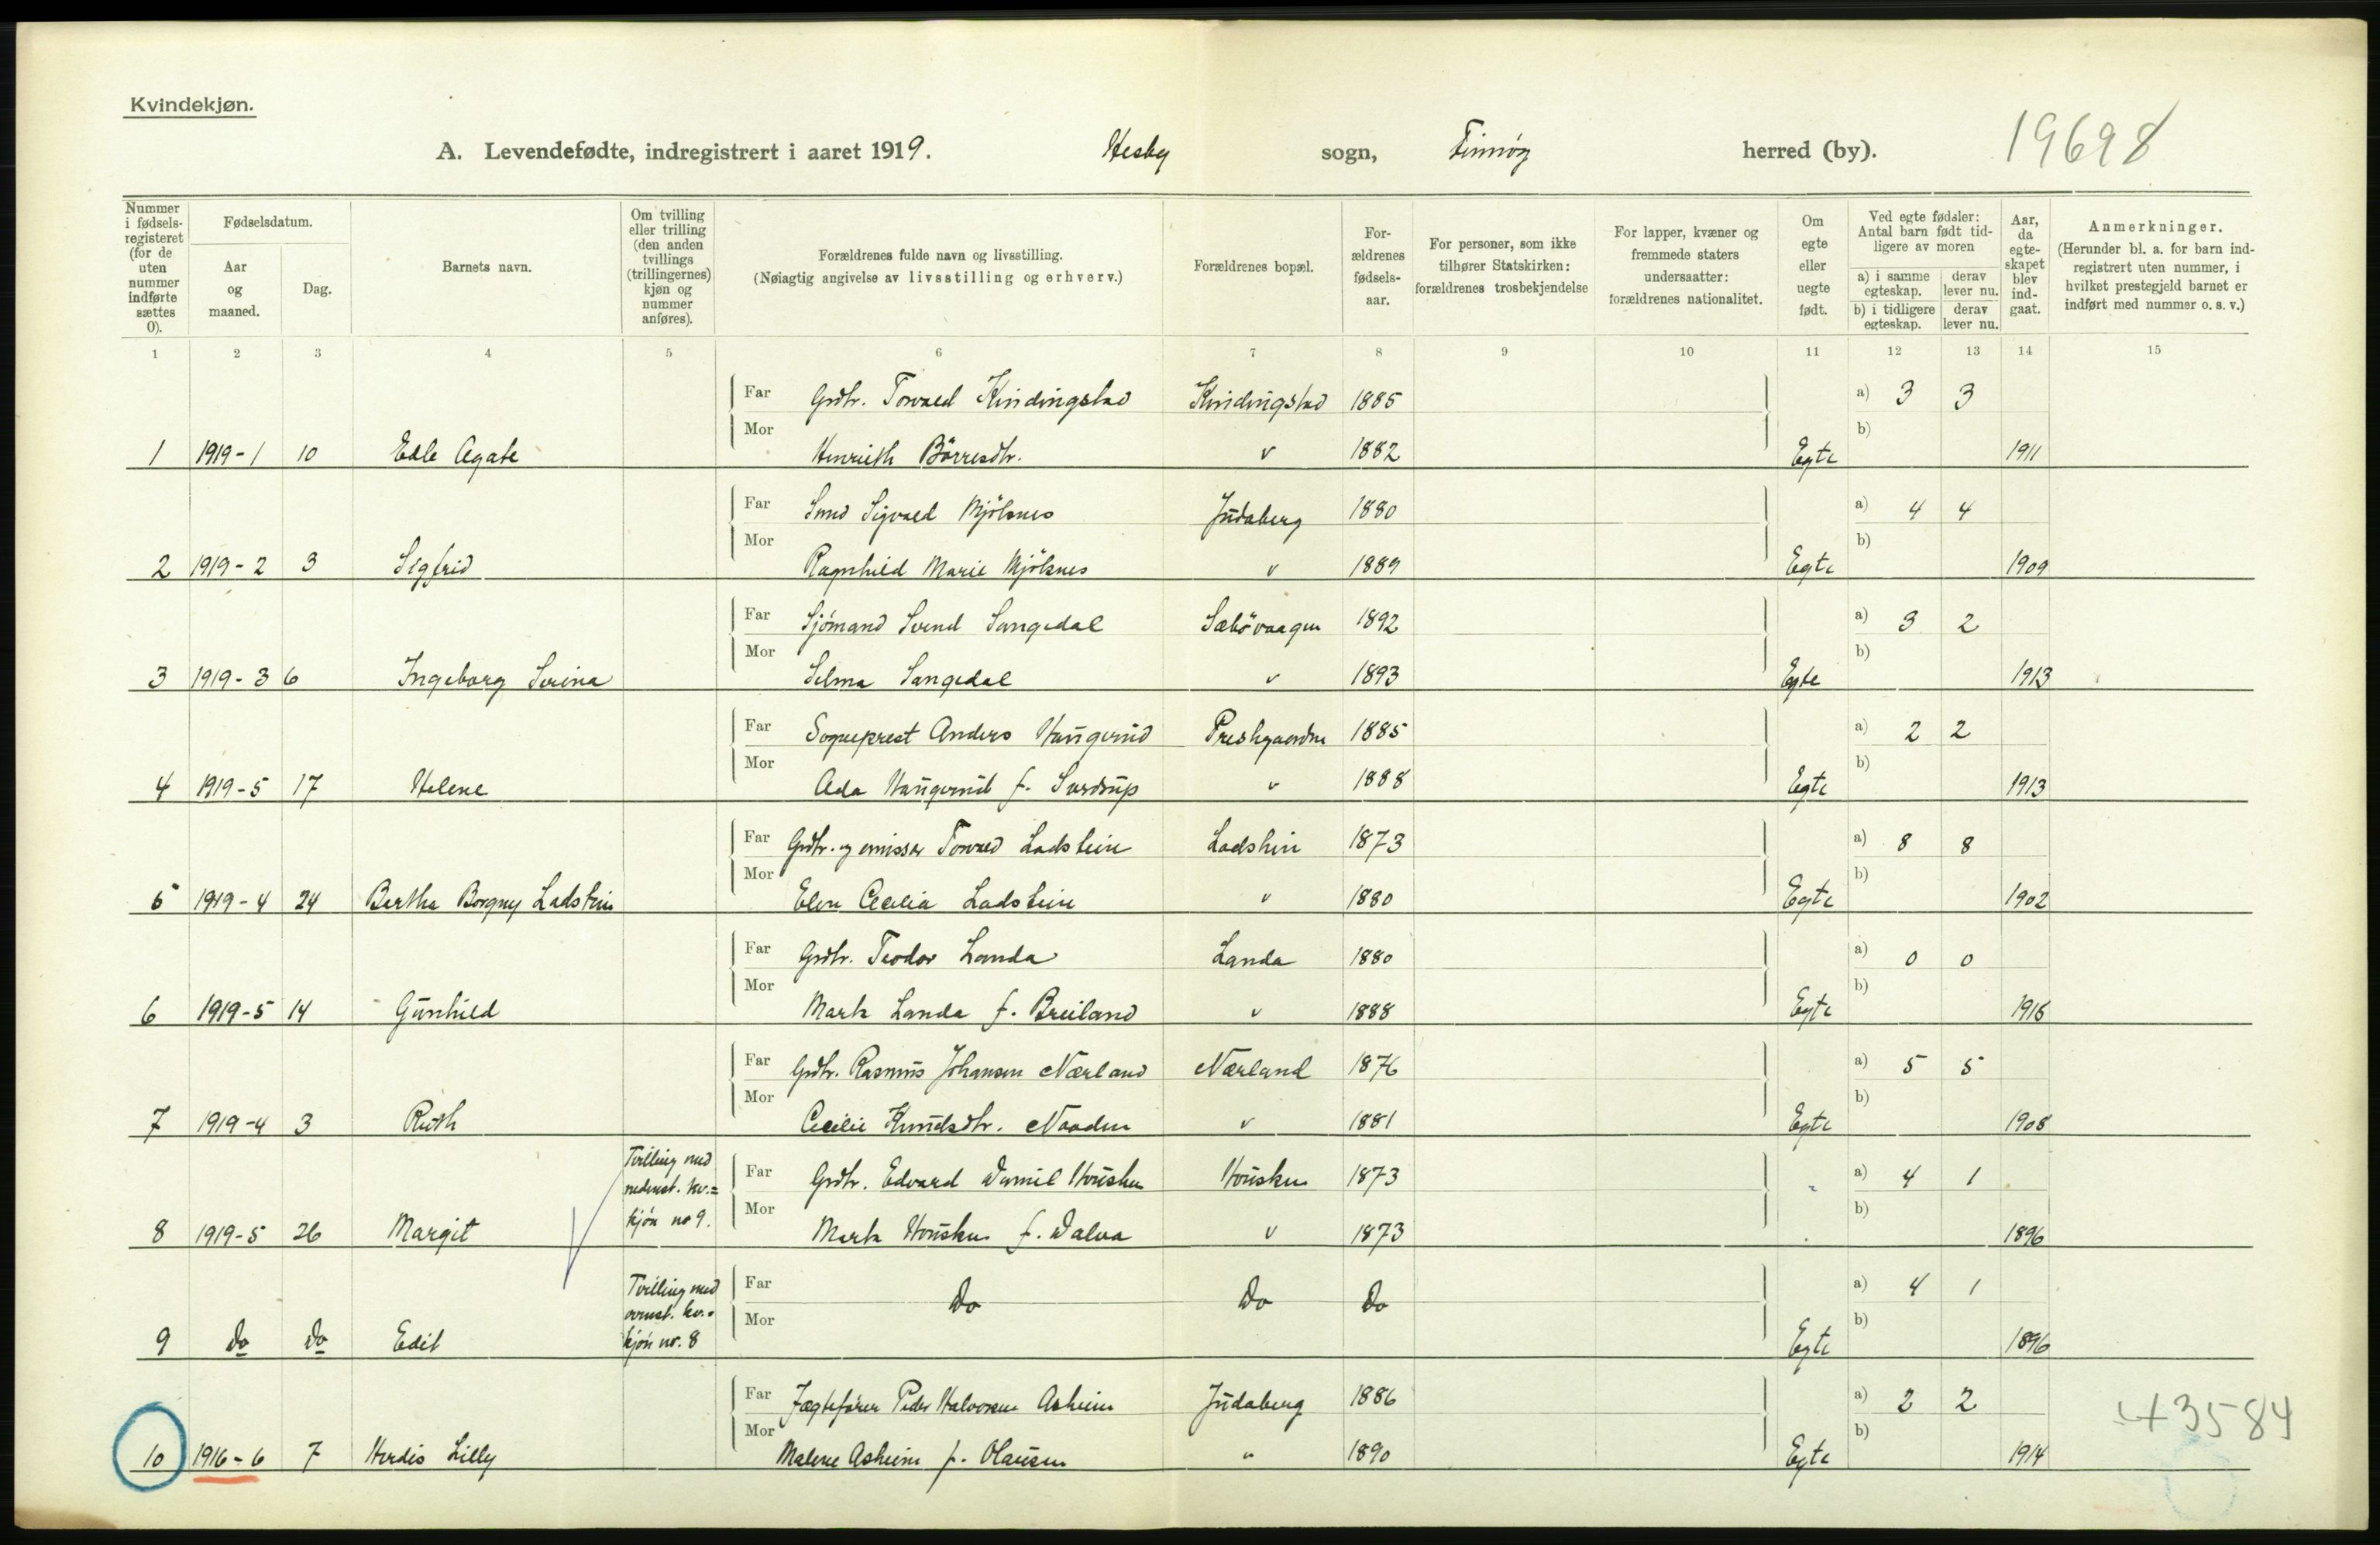 Kvindekjøn.
A. Levendefødte, indregistrert i aaret 1919. Hesby sogn, Finnøy herred (by). 19698
Nummer i fødselsregisteret (for de uten nummer indførte sættes 0).
Fødselsdatum.
Aar og maaned.
Dag.
Barnets navn.
Om tvilling eller trilling (den anden tvillings (trillingernes) kjøn og nummer anføres).
Forældrenes fulde navn og livsstilling.
(Nøiagtig angivelse av livsstilling og erhverv.)
Forældrenes bopæl.
Forældrenes fødselsaar.
For personer, som ikke tilhører Statskirken: forældrenes trosbekjendelse
For lapper, kvæner og fremmede staters undersaatter: forældrenes nationalitet.
Om egte eller uegte født.
Ved egte fødsler: Antal barn født tidligere av moren
a) i samme egteskap. derav lever nu.
b) i tidligere egteskap. derav lever nu.
Aar, da egteskapet blev indgaat.
Anmerkninger.
(Herunder bl. a. for barn indregistrert uten nummer, i hvilket prestegjeld barnet er indført med nummer o. s. v.)
1 2 3 4 5 6 7 8 9 10 11 12 13 14 15
Far Grdbr. Torvald Kindingstad Kindingstad 1885 a) 3 3
Mor b)
1 1919-1 10 Edle Agate Henrieth Börresdtr. " 1882 Egte 1911
Far Smed Sigvald Mjölsnes Judaberg 1880 a) 4 4
Mor b)
2 1919-2 3 Sigfrid Ragnhild Marie Mjölsnes " 1889 Egte 1909
Far Sjømand Svend Sangedal Sæbövaagen 1892 a) 3 2
Mor b)
3 1919-3 6 Ingeborg Serina Selma Sangedal " 1893 Egte 1913
Far Sogneprest Anders Haugerud Prestegaarden 1885 a) 2 2
Mor b)
4 1919-5 17 Helene Ada Haugerud f. Sverdrup " 1888 Egte 1913
Far Grdbr. og emissær Torvald Ladstein Ladstein 1873 a) 8 8
Mor b)
5 1919-4 24 Bertha Borgny Ladstein Elen Cecilia Ladstein " 1880 Egte 1902
Far Grdbr. Teodor Landa Landa 1880 a) 0 0
Mor b)
6 1919-5 14 Gunhild Marta Landa f. Breiland " 1888 Egte
Far Grdbr. Rasmus Johansen Nærland Nærland 1876 a) 5 5
Mor b)
7 1919-4 3 Ruth Cecilie Knudsdtr. Naaden " 1881 Egte 1908
Tvilling med nedenst. kv.=kjøn no 9.
Far Grdbr. Edvard Daniel Housken Housken 1873 a) 4 1
Mor b)
8 1919-5 26 Margit Marta Housken f. Dalva " 1873 1896
Tvilling med ovenst. kv.=kjøn no. 8
Far Do Do Do a) 4 1
Mor b)
9 Do Do Edit Egte 1896
Far Jægtefører Peder Halvorsen Asheim Judaberg 1886 a) 2 2
Mor b)
10 1916-6 7 Herdis Lilly Malene Asheim f. Olausen " 1890 Egte 1914
+3584